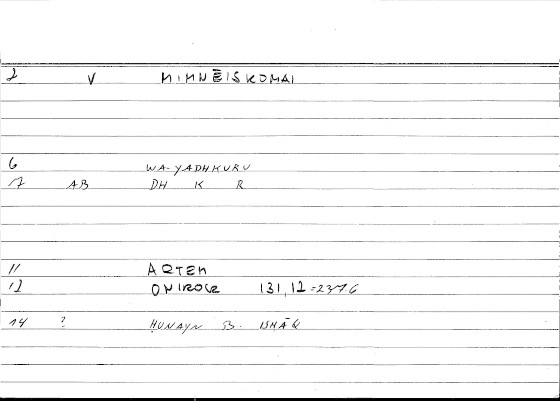 2 V MIMNĒISKOMAI
6 WA-YADHKURU
7 AB DH K R
11 ARTEM
12 ONIROCR 131,12 = 237.6
14 ? ḤUNAYN B. ISḤĀQ